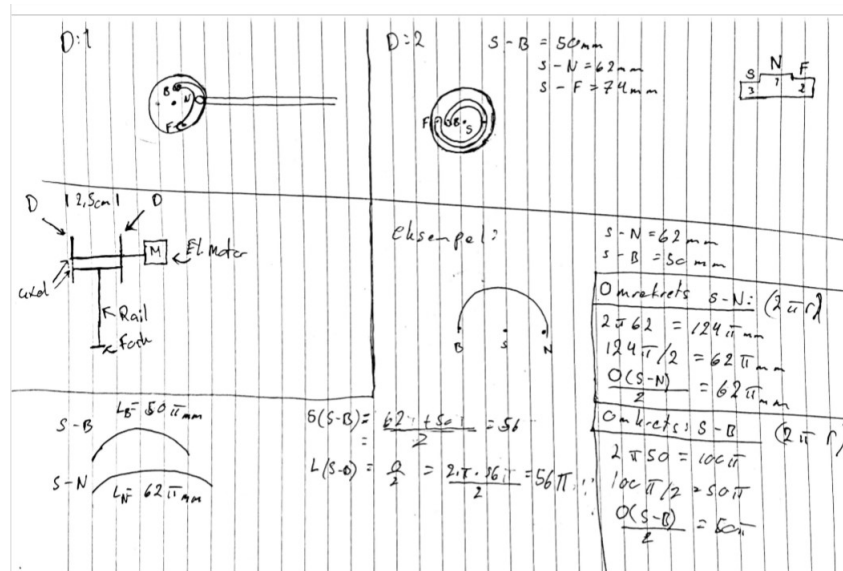 D:1
B
N
F
D:2
S-B = 50mm
S-N = 62mm
S-F = 74mm
F B S
S N F
3 1 2
D | 2,5cm | D
M
El. Motor
axel
Rail
Fork
eksempel:
B S N
S-N = 62mm
S-B = 50mm
Omrekrets S-N: (2πr)
2π62 = 124π mm
124π/2 = 62π mm
O(S-N)/2 = 62π mm
Omkrets: S-B (2πr)
2π50 = 100π
100π/2 = 50π
O(S-B)/2 = 50π
S-B L_B = 50π mm
S-N L_N = 62π mm
= 56
= 56π